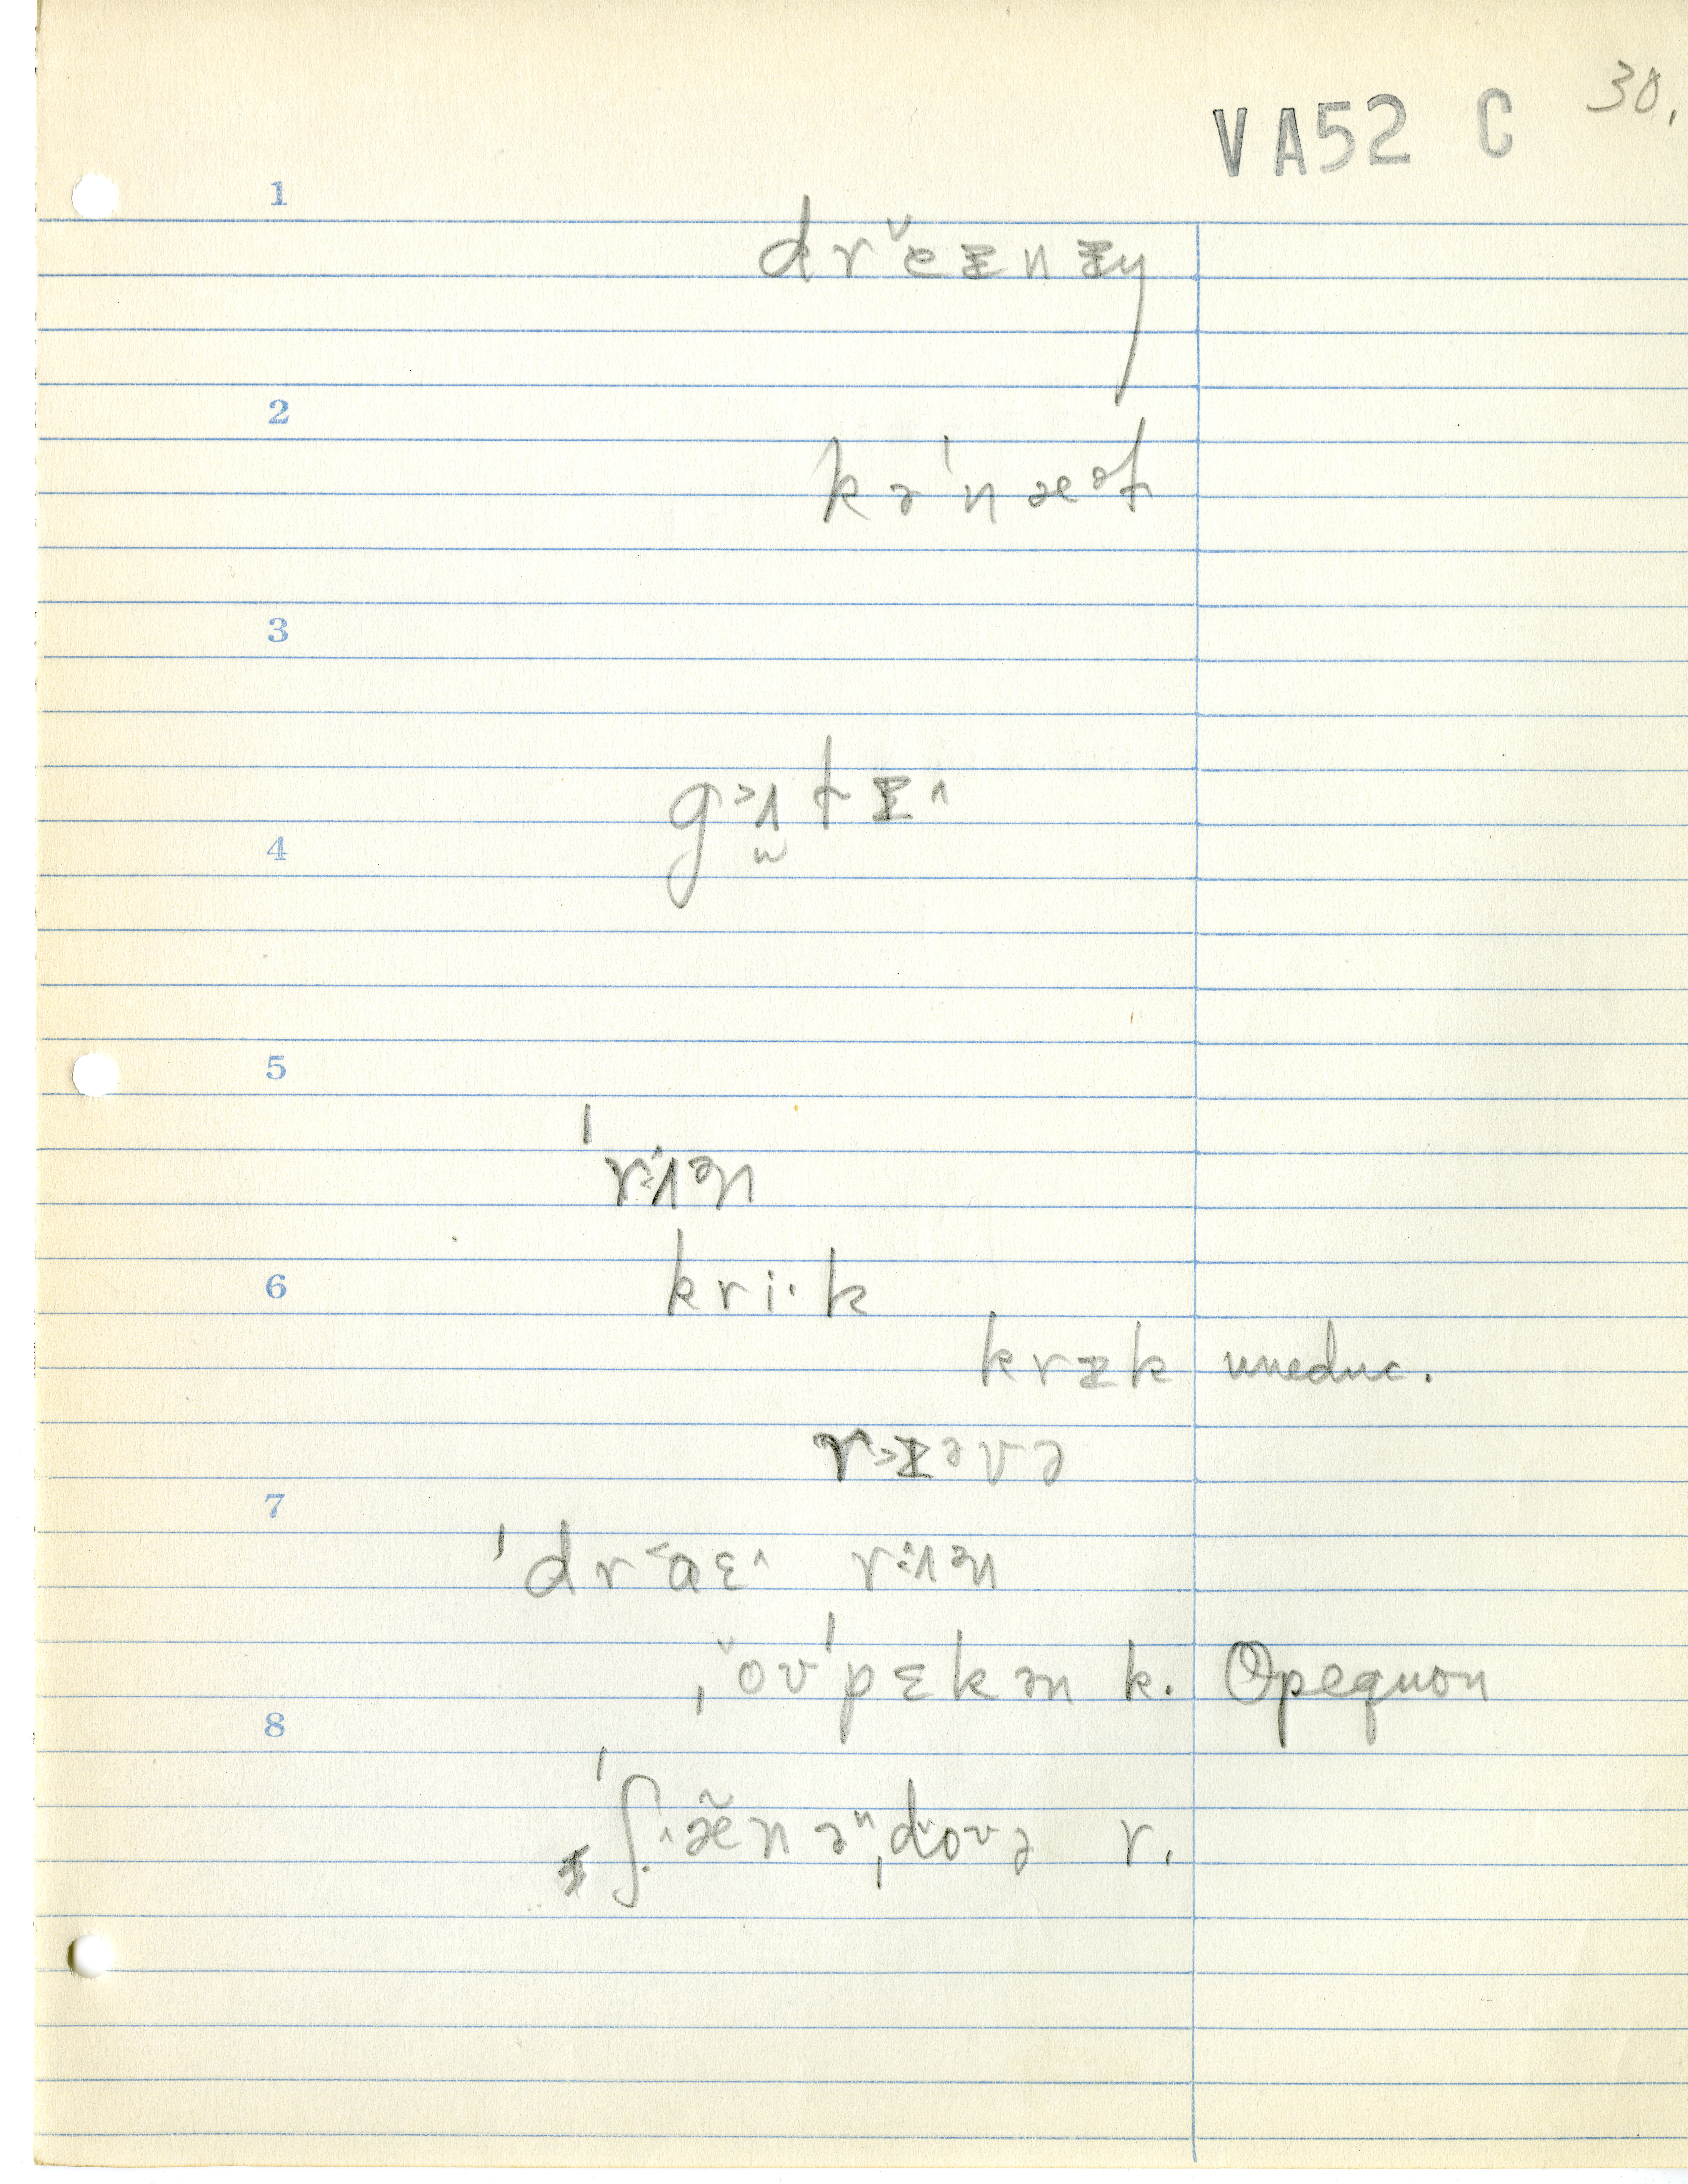 30.
VA52 C
1
drě̌ɪnɪŋ
2
kə'næᵊl
3
4
gʌ̯˃tɪ^
5
'rʌən
6
kri·k
krɪk uneduc.
r˃ɪəvə
7
'dr˂aɛ^ rʌən
ˌǒʊ'pɛkən k. Opequon
8
'ʃæ̌nəⁿˌdoʊə r.